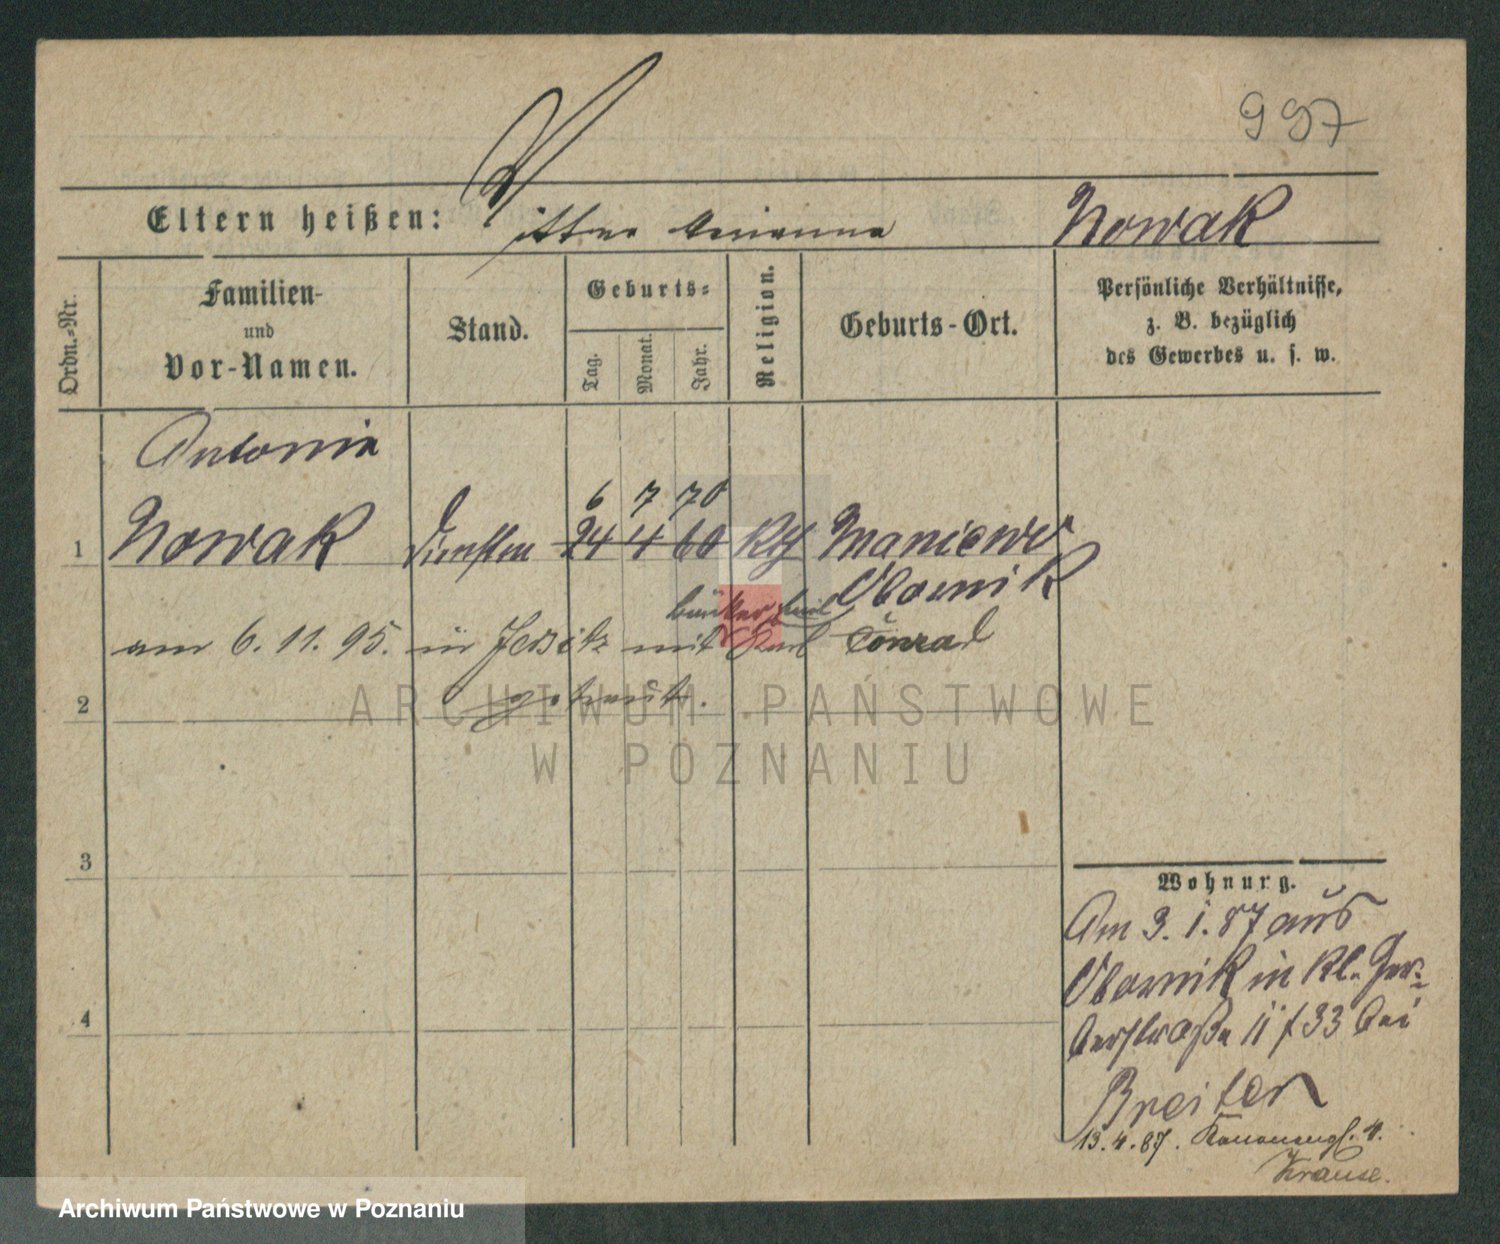 997
Eltern heißen: Nowak
Ordn.-Nr.
Familien-
und
Vor-Namen.
Stand.
Geburts-
Tag.
Monat.
Jahr.
Religion.
Geburts-Ort.
Persönliche Verhältnisse,
z. B. bezüglich
des Gewerbes u. s. w.
Antonie
6 7 70
1 Nowak 24 4 60 Kth Maniewo
Obornik
am 6. 11. 95. in Jersitz mit Karl Conrad
getraut.
2
3
4
Wohnung.
Am 3. 1. 87 aus
Obornik in Kl. Ger-
berstraße 11 / 33 bei
Breiter
13. 4. 87. Kanonengl. 4.
Krause.
ARCHIWUM PAŃSTWOWE
W POZNANIU
Archiwum Państwowe w Poznaniu